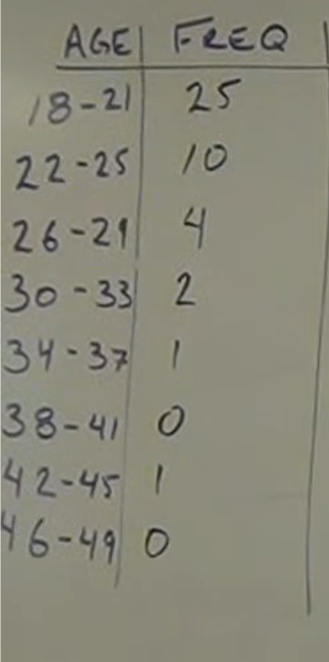 AGE FREQ
18-21 25
22-25 10
26-29 4
30-33 2
34-37 1
38-41 0
42-45 1
46-49 0